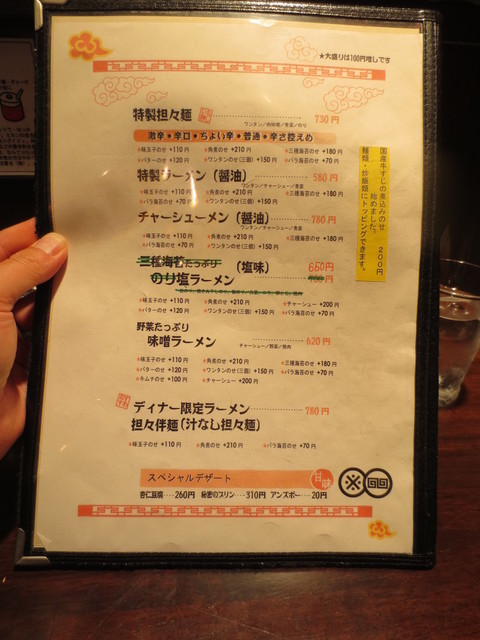 ★大盛りは100円増しです
特製担々麺 730円
ワンタン/肉味噌/青菜/のり
激辛●辛口●ちょい辛●普通●辛さ控えめ
★味玉子のせ +110円 ★角煮のせ +210円 ★三種海苔のせ +180円
★バターのせ +120円 ★ワンタンのせ(三個) +150円 ★バラ海苔のせ +70円
特製ラーメン(醤油) 580円
ワンタン/チャーシュー/青菜
★味玉子のせ +110円 ★角煮のせ +210円 ★三種海苔のせ +180円
★バラ海苔のせ +70円 ★ワンタンのせ(三個) +150円
チャーシューメン(醤油) 780円
ワンタン/チャーシュー/青菜
★味玉子のせ +110円 ★角煮のせ +210円 ★三種海苔のせ +180円
★バラ海苔のせ +70円 ★ワンタンのせ(三個) +150円
三種海苔たっぷり (塩味) 660円
のり塩ラーメン
★味玉子のせ +110円 ★角煮のせ +210円 ★チャーシュー +200円
★バターのせ +120円 ★ワンタンのせ(三個) +150円 ★バラ海苔のせ +70円
野菜たっぷり
味噌ラーメン 620円
チャーシュー/野菜/挽肉
★味玉子のせ +110円 ★角煮のせ +210円 ★三種海苔のせ +180円
★バターのせ +120円 ★ワンタンのせ(三個) +150円 ★バラ海苔のせ +70円
★キムチのせ +100円 ★チャーシュー +200円
ディナー限定ラーメン 780円
担々伴麺(汁なし担々麺)
★味玉子のせ +110円 ★角煮のせ +210円 ★バラ海苔のせ +70円
スペシャルデザート 甘味
杏仁豆腐‥‥260円 秘密のプリン‥‥310円 アンズボー‥‥20円
国産牛すじの煮込みのせ 200円
始めました。
麺類・炒飯類にトッピングできます。